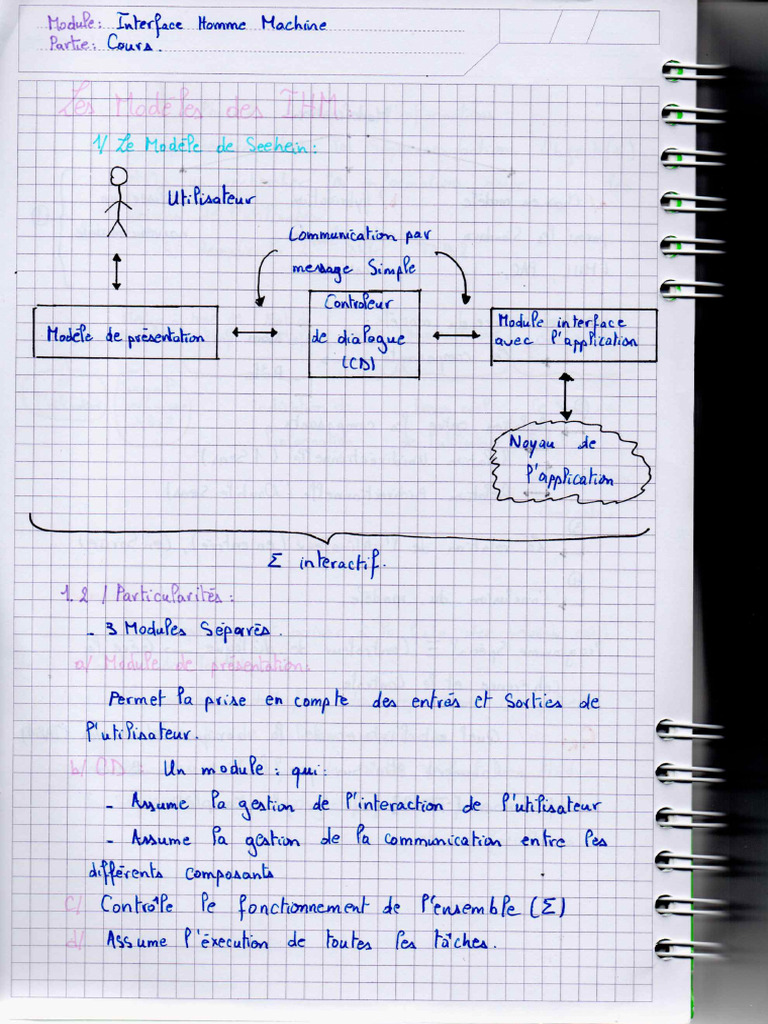 Module: Interface Homme Machine
Partie: Cours.
Les Modèles des IHM:
1/ Le Modèle de Seehein:
Utilisateur
Communication par
message Simple
Modèle de présentation
Controleur
de dialogue
(CD)
Module interface
avec l'application
Noyau de
l'application
Σ interactif.
1.2 / Particularités:
- 3 Modules Séparés.
a/ Module de présentation:
Permet la prise en compte des entrés et Sorties de
l'utilisateur.
b/ CD: Un module: qui:
- Assume la gestion de l'interaction de l'utilisateur
- Assume la gestion de la communication entre les
différents composants
c/ Contrôle le fonctionnement de l'ensemble (Σ)
d/ Assume l'éxecution de toutes les tâches.